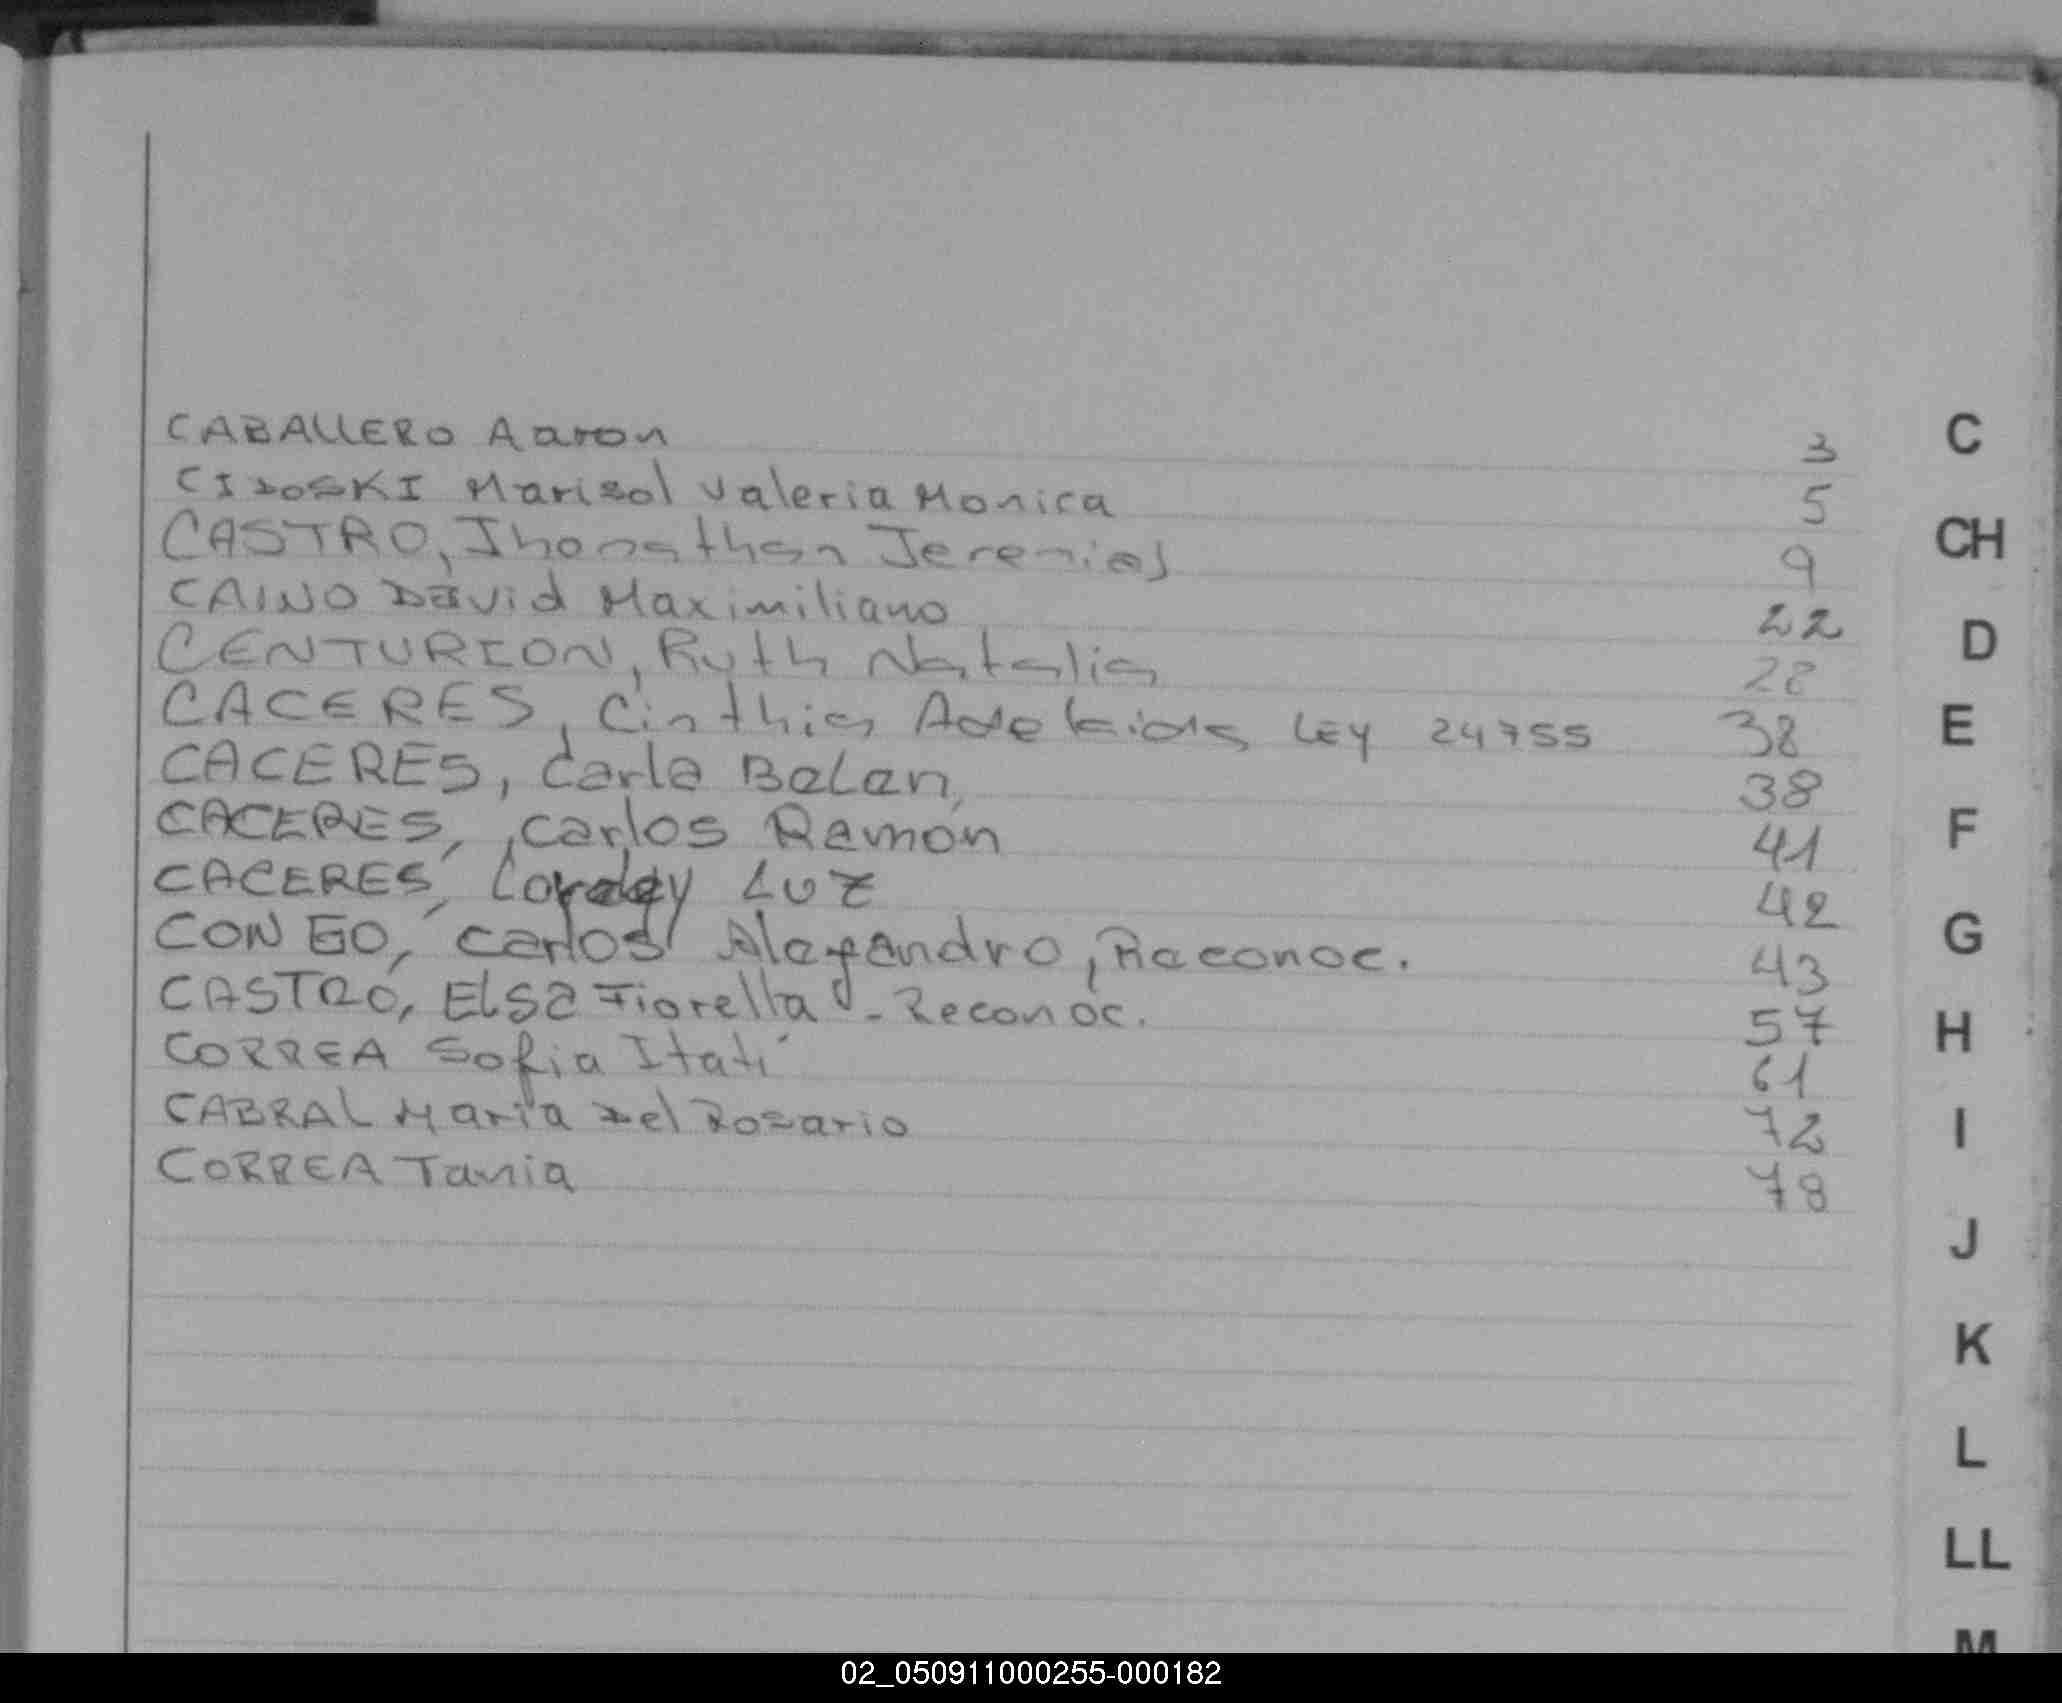 CABALLERO Aaron 3
CIDOSKI Marisol Valeria Monica 5
CASTRO, Jhonathan Jeremias 9
CAINO David Maximiliano 22
CENTURION, Ruth Natalia 28
CACERES, Cinthia Adelaida LEY 24755 38
CACERES, Carla Belen, 38
CACERES, Carlos Ramón 41
CACERES, LUZ 42
CONGO, Carlos Alejandro, Reconoc. 43
CASTRO, Elsa Fiorella - Reconoc. 57
CORREA Sofia Itatí 61
CABRAL María Del Rosario 72
CORREA Tania 78
C
CH
D
E
F
G
H
I
J
K
L
LL
M
02_050911000255-000182